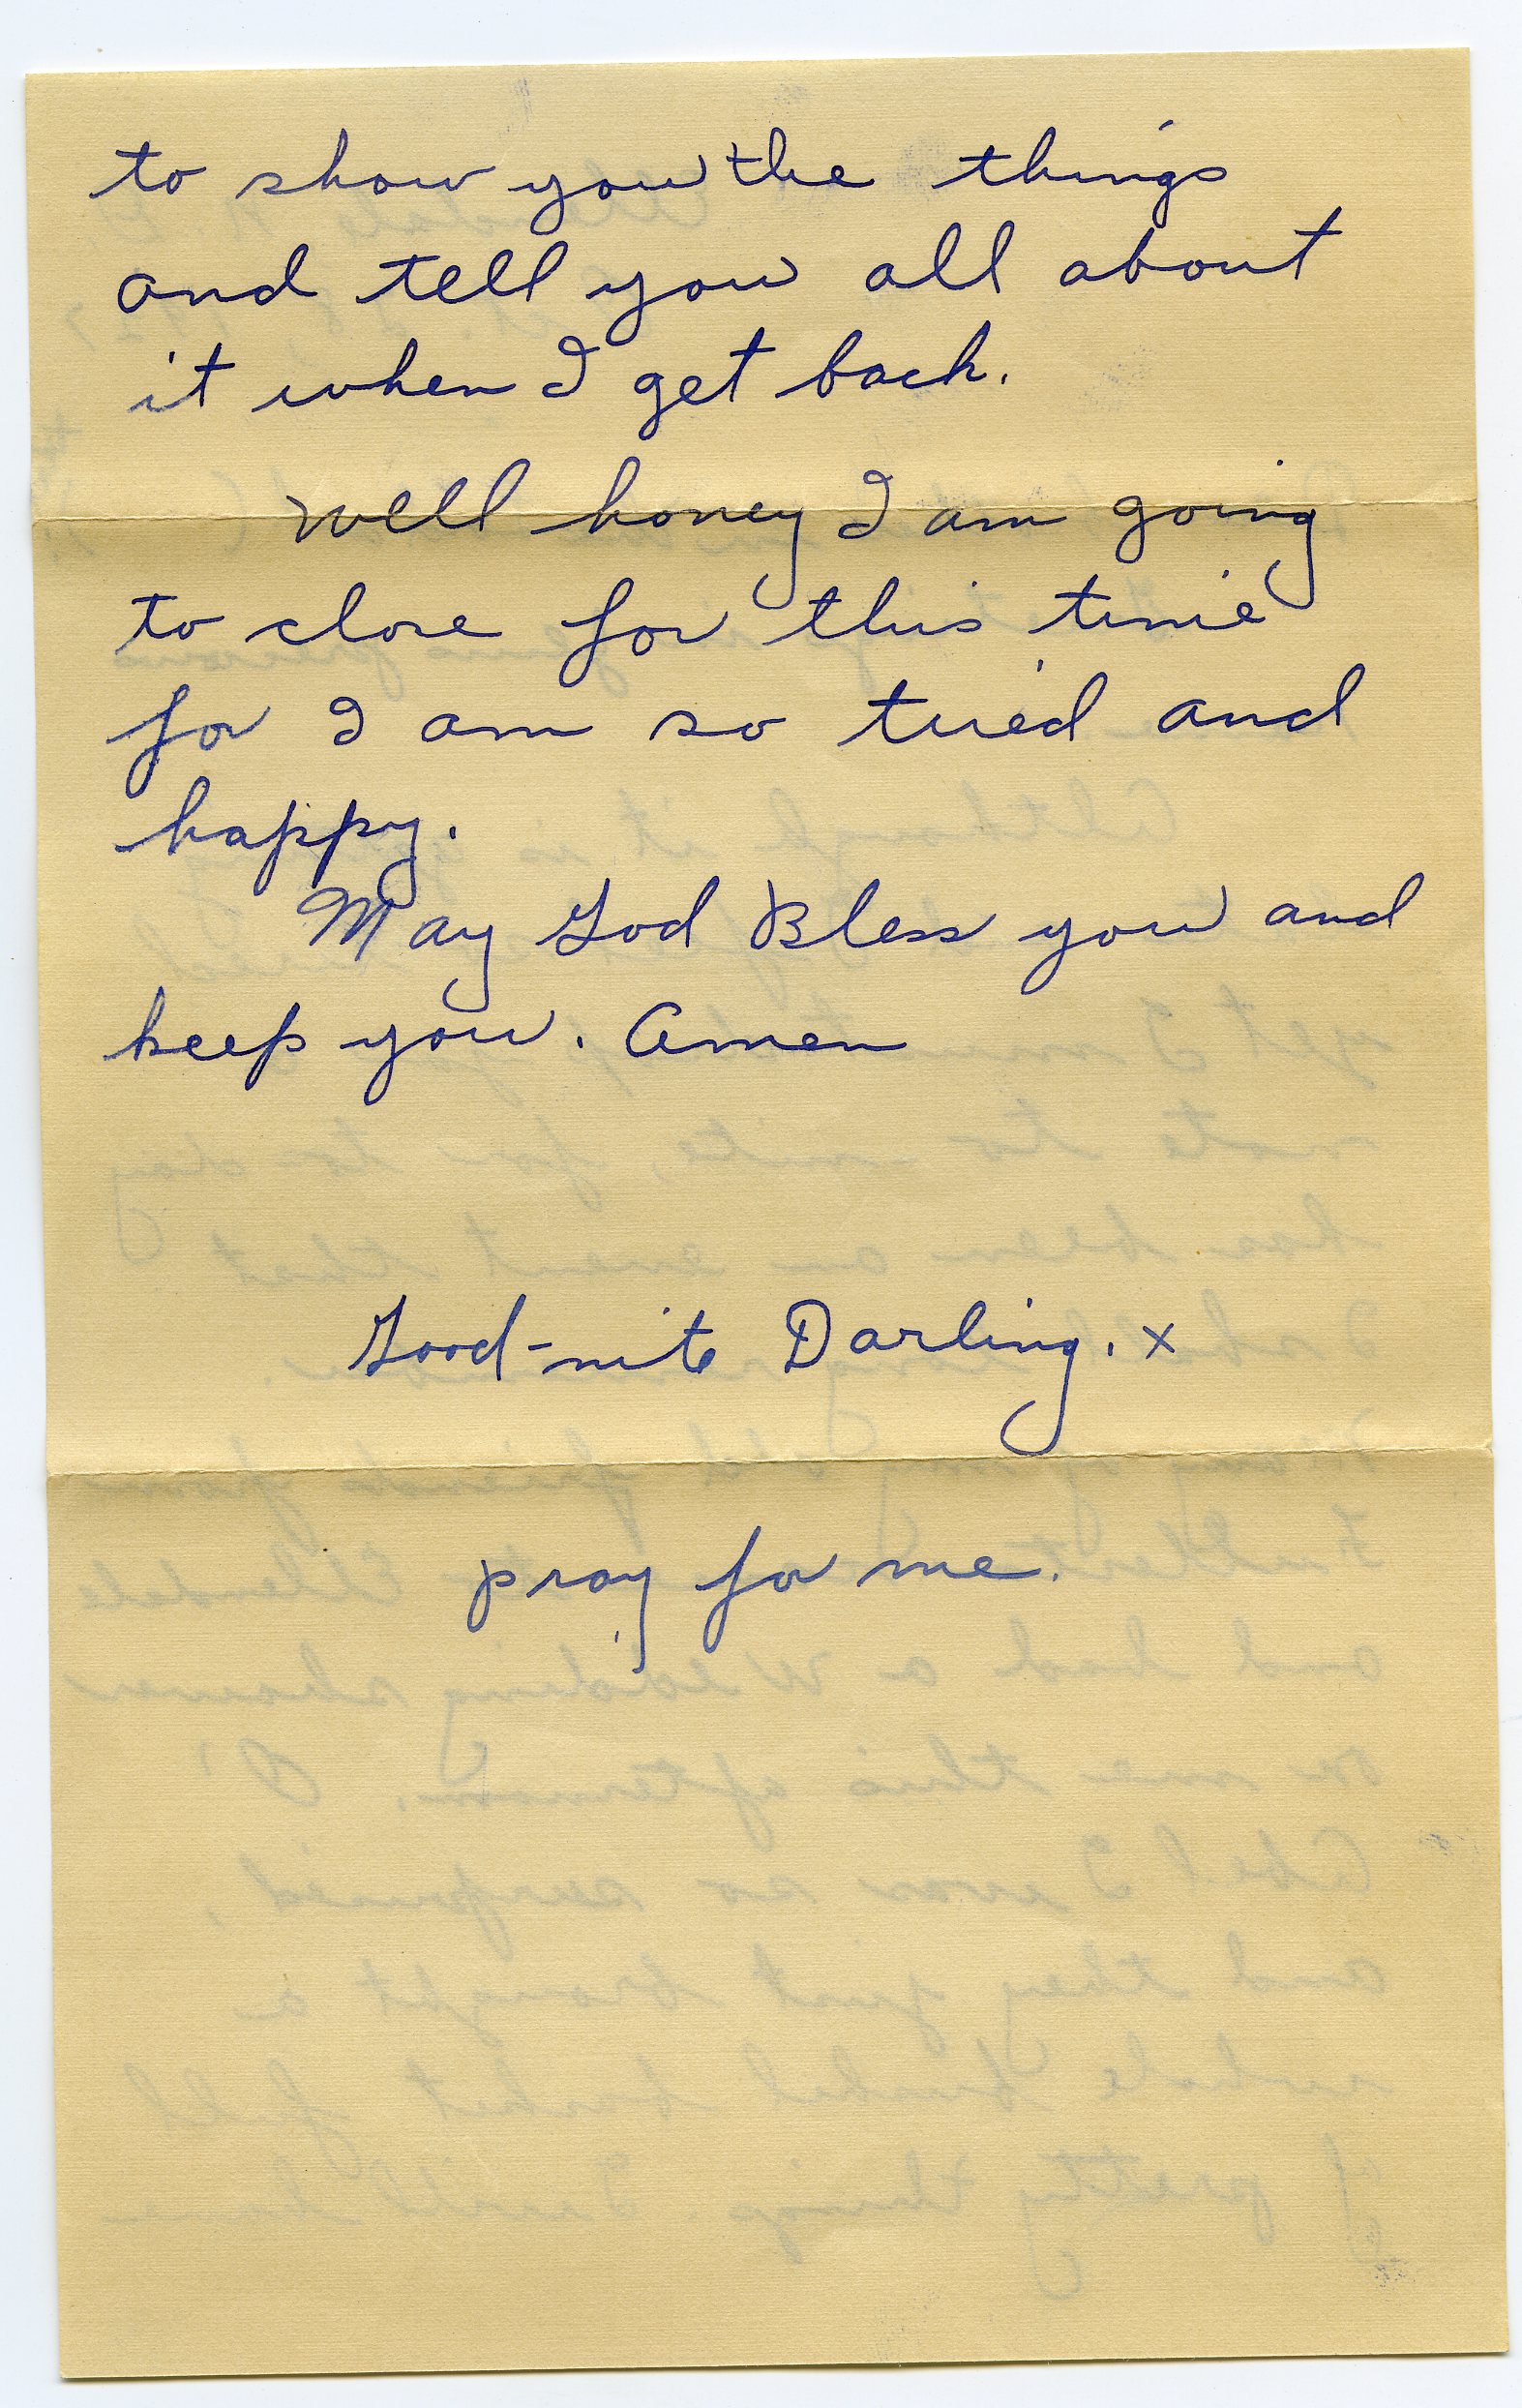 to show you the things
and tell you all about
it when I get back.
Well honey I am going
to close for this time
for I am so tired and
happy.
May God Bless you and
keep you. Amen
Good-nite Darling. x
pray for me.